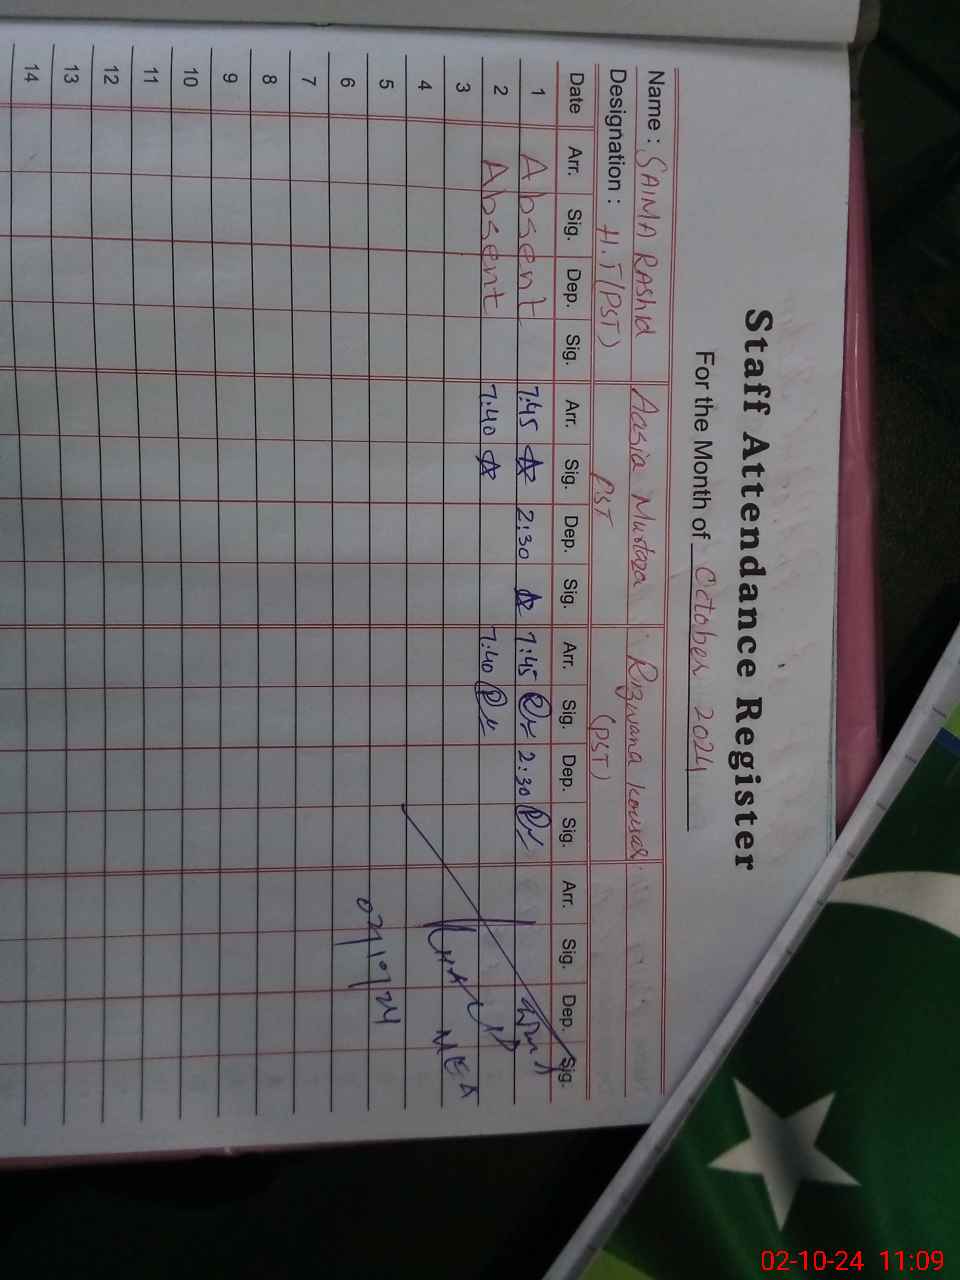 Staff Attendance Register
For the Month of October 2024
Name : SAIMA RASHId Aasia Murtaza Rizwana kousar
Designation : H.T(PST) PST (PST)
Date Arr. Sig. Dep. Sig. Arr. Sig. Dep. Sig. Arr. Sig. Dep. Sig. Arr. Sig. Dep. Sig.
1 Absent 7:45 2:30 7:45 2:30
2 Absent 7:40 7:40
3 MEA
4
5
6
7
8
9
10
11
12
13
14
02-10-24 11:09